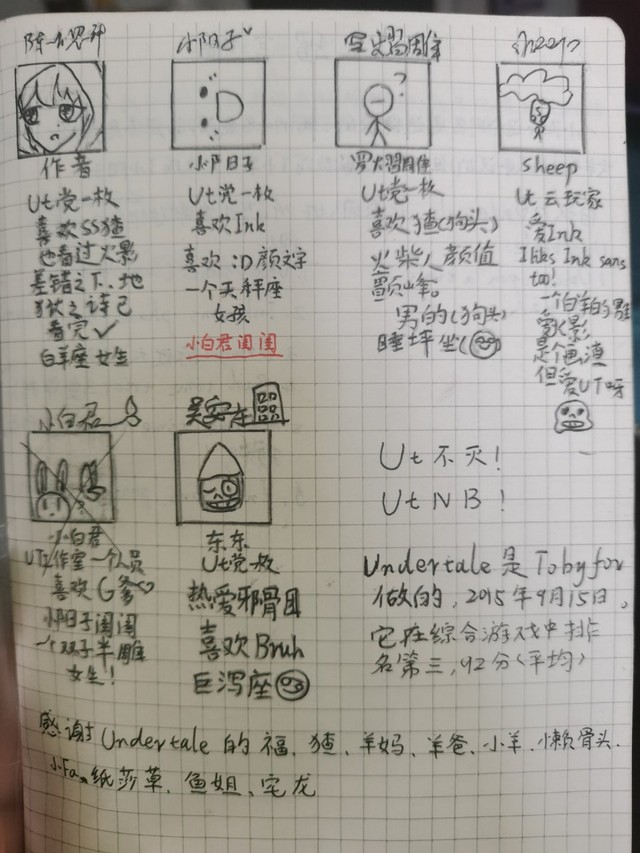 小阳子
作者
Ut党一枚
喜欢SS猹
也看过火影
差错之下、地
狱之诗已
看完✓
白羊座女生
小阳日子
Ut党一枚
喜欢Ink
喜欢:D颜文字
一个天秤座
女孩
小白君闺闺
Ut党一枚
喜欢猹(狗头)
火柴人颜值
巅峰。
男的(狗头)
sheep
Ut云玩家
爱Ink
I liks Ink sans
too!
爱火影
是个画渣
但爱UT呀
小白君
小白君
喜欢G爹
小阳日子闺闺
女生!
吴安东
东东
Ut党一枚
热爱邪骨团
喜欢Bruh
巨泻座
Ut不灭!
Ut NB!
Undertale是Tobyfox
做的,2015年9月15日。
它在综合游戏中排
名第三,92分(平均)
感谢Undertale的福、猹、羊妈、羊爸、小羊、懒骨头.
纸莎草、鱼姐、宅龙